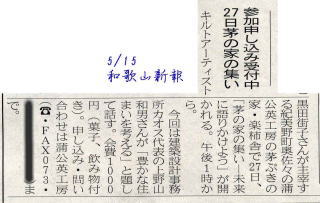 5/15
和歌山新報
参加申し込み受付中
27日茅の家の集い
キルトアーティスト
黒田街子さんが主宰す
る紀美野町奥佐々の蒲
公英工房の茅ぶきの
家・楽柿舎で27日、
「茅の家の集い・未来
に語りかけよう」が開
かれる。午後1時か
ら。
今回は建築設計事務
所カオス代表の上野山
和男さんが「豊かな住
まいを考える」と題し
て話す。会費1000
円（菓子、飲み物付
き）。申し込み・問い
合わせは蒲公英工房
（☎・FAX073・
ま
で。